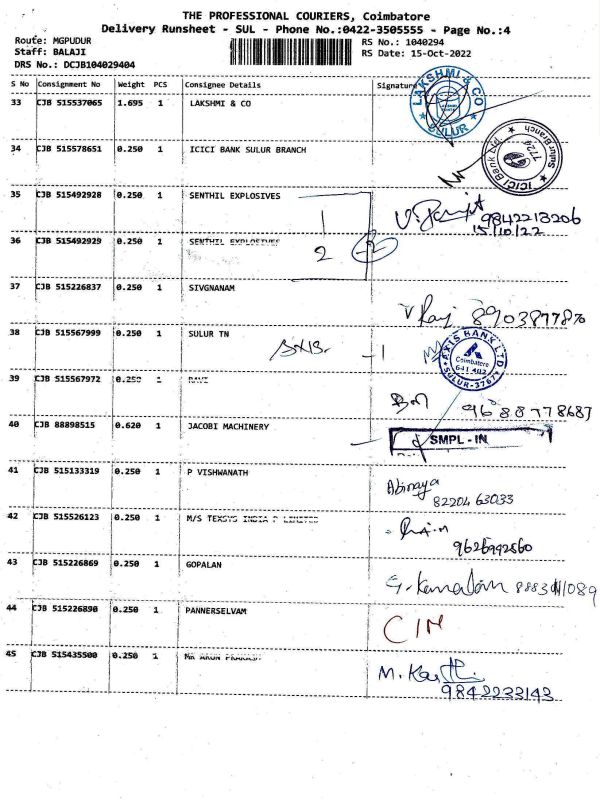 THE PROFESSIONAL COURIERS, Coimbatore
Delivery Runsheet - SUL - Phone No.:0422-3505555 - Page No.:4
Route: MGPUDUR RS No.: 1040294
Staff: BALAJI RS Date: 15-Oct-2022
DRS No.: DCJB104029404
S No Consignment No Weight PCS Consignee Details Signature
33 CJB 515537065 1.695 1 LAKSHMI & CO
LAKSHMI & CO SULUR
34 CJB 515578651 0.250 1 ICICI BANK SULUR BRANCH
ICICI Bank Ltd. Sulur Branch 7724
35 CJB 515492928 0.250 1 SENTHIL EXPLOSIVES
1
9842213206
15/10/22
36 CJB 515492929 0.250 1 SENTHIL EXPLOSIVES
2
37 CJB 515226837 0.250 1 SIVGNANAM
V Raj 8903877870
38 CJB 515567999 0.250 1 SULUR TN
-1
AXIS BANK LTD Coimbatore 641 402 SULUR-3767
39 CJB 515567972 0.250 1 RAVI
9688778687
40 CJB 88898515 0.620 1 JACOBI MACHINERY
SMPL - IN
41 CJB 515133319 0.250 1 P VISHWANATH
Abinaya
8220463033
42 CJB 515526123 0.250 1 M/S TEXSYS INDIA P LIMITED
9626992560
43 CJB 515226869 0.250 1 GOPALAN
44 CJB 515226890 0.250 1 PANNERSELVAM
CIN
45 CJB 515435500 0.250 1 MR ARUN PRAKASH
M. Karthi
9842233143